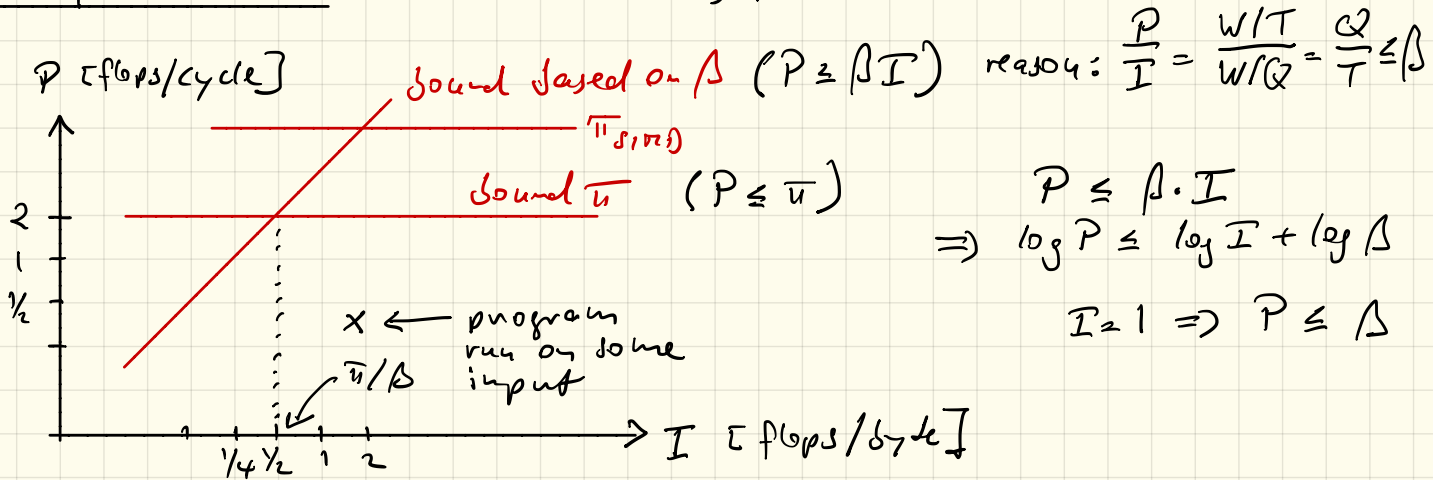 P [flops/cycle]
bound based on β (P ≤ βI)
reason: P/I = (W/T)/(W/Q) = Q/T ≤ β
π SIMD
bound π (P ≤ π)
P ≤ β · I
⇒ log P ≤ log I + log β
I = 1 ⇒ P ≤ β
2
1
1/2
x ← program
run on some
input
π/β
1/4 1/2 1 2
I [flops/byte]